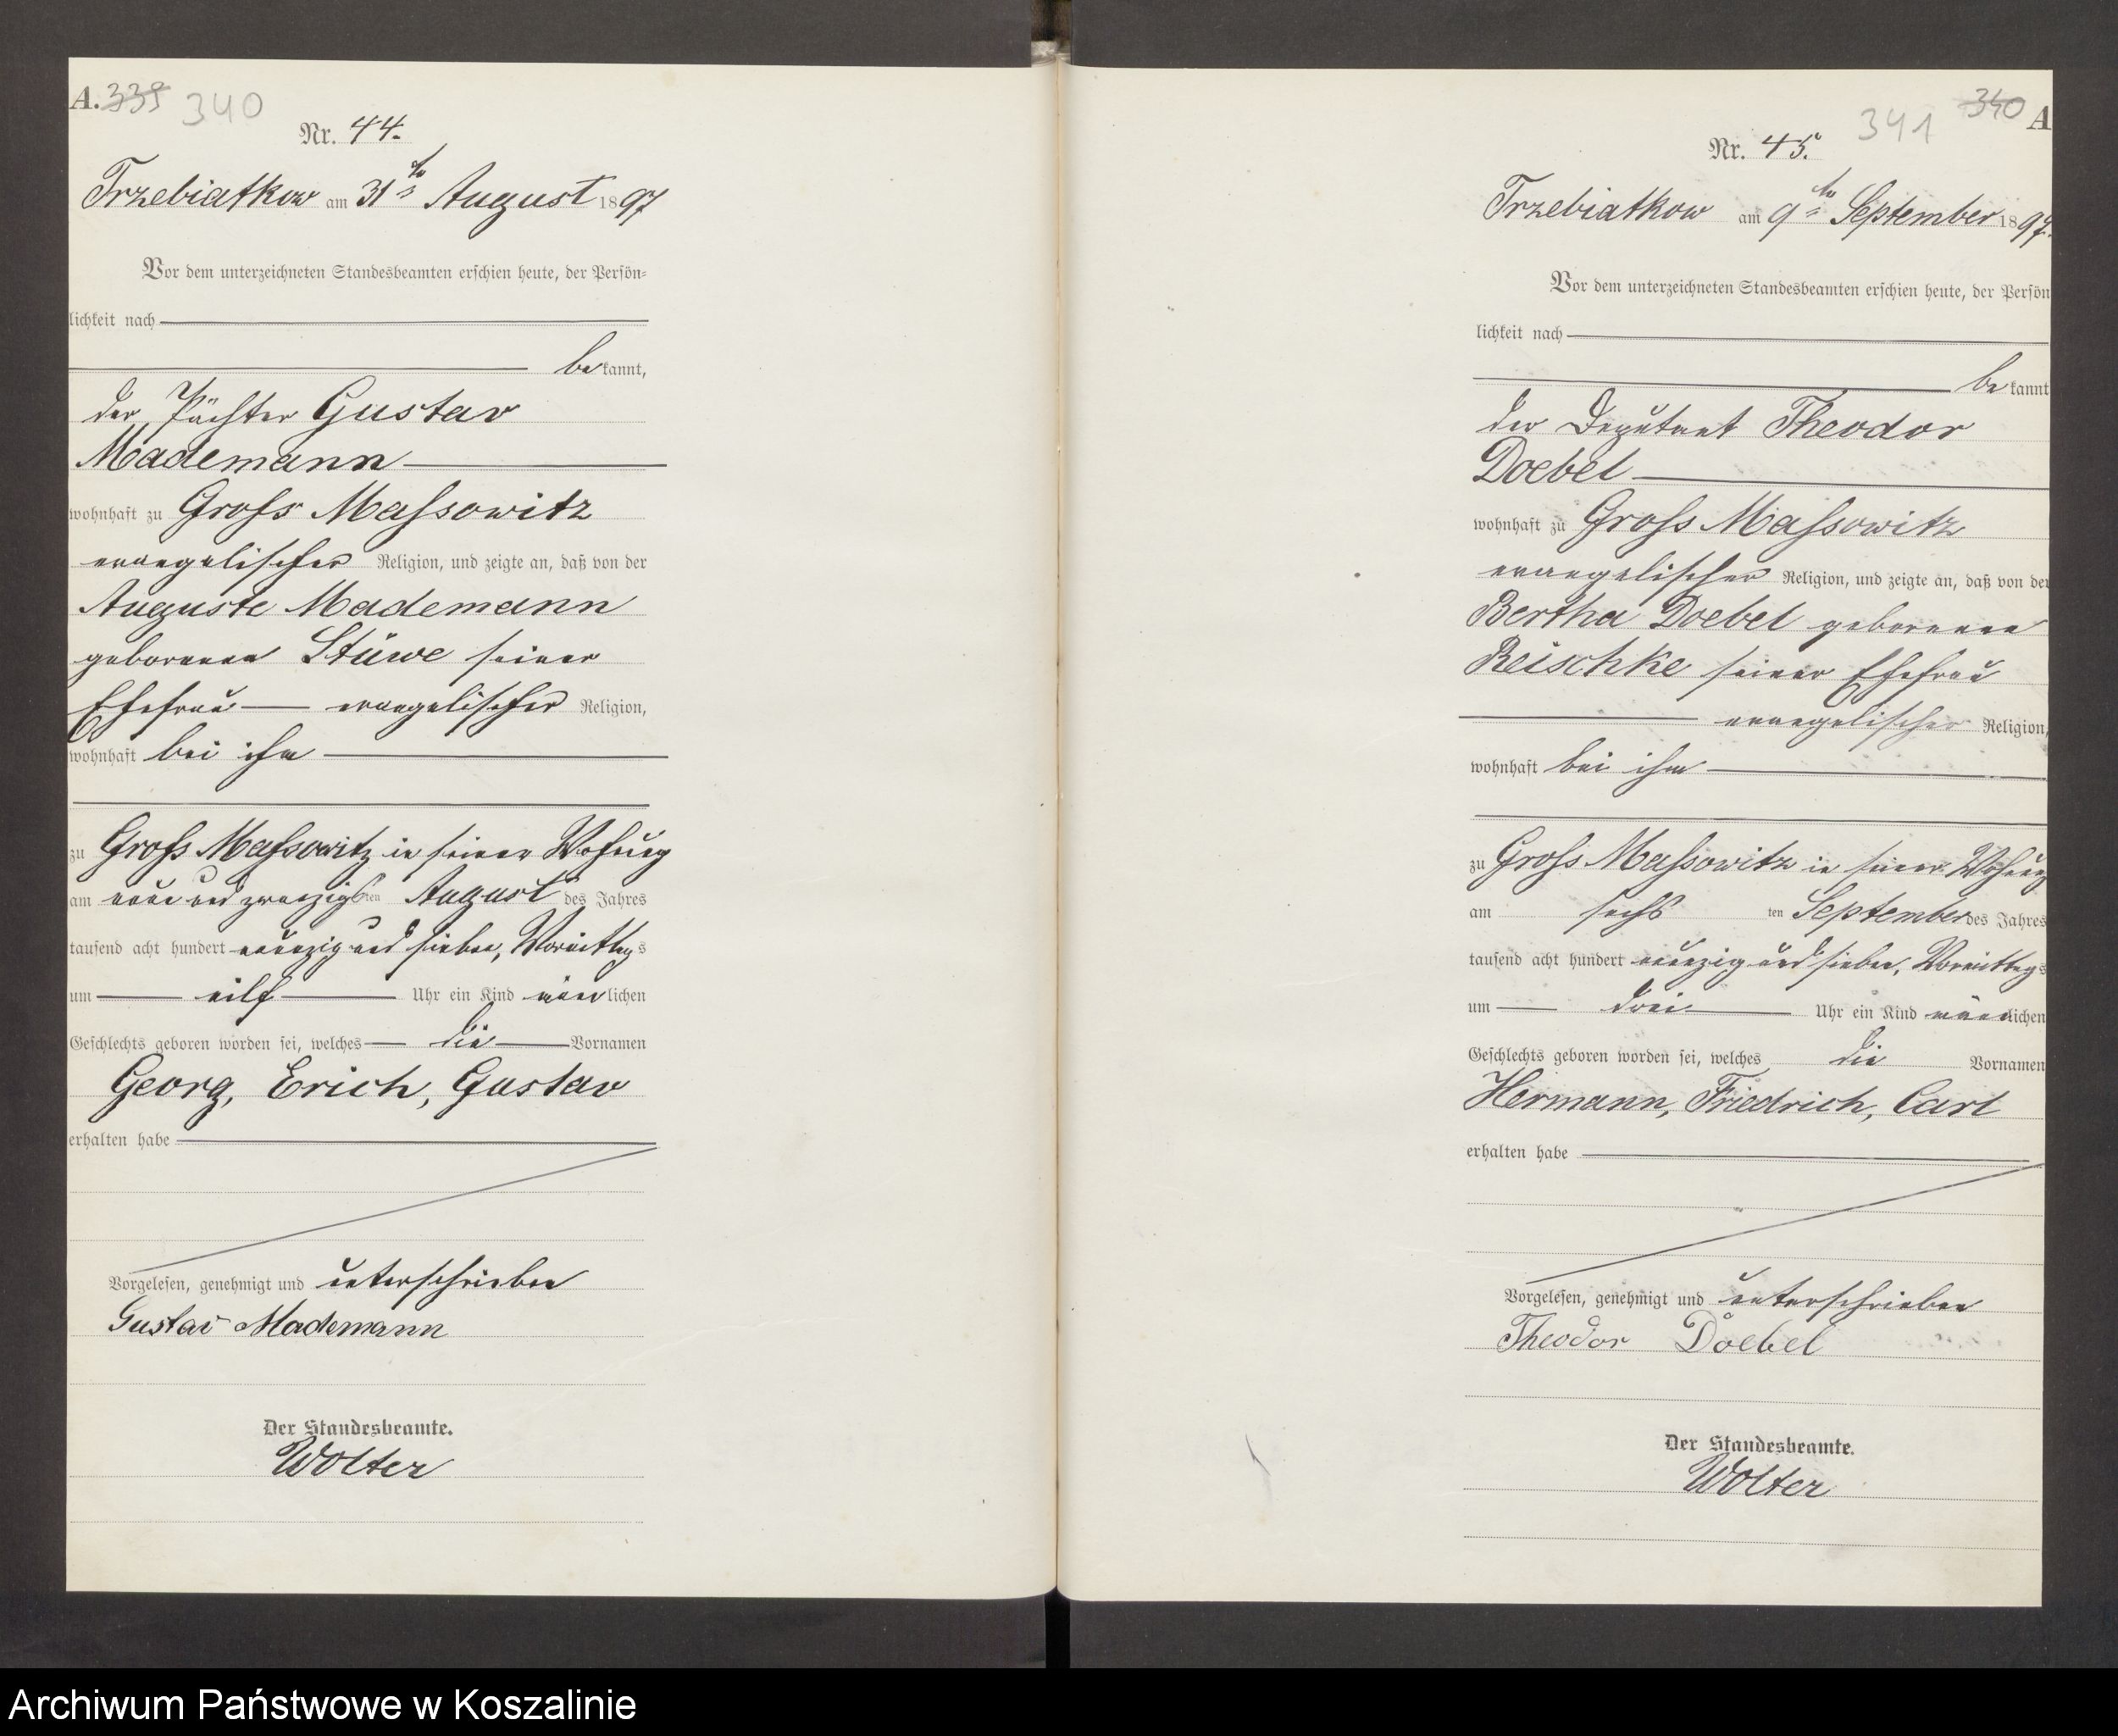 A. 339 340
Nr. 44.
Trzebiatkow am 31ten August 1897
Vor dem unterzeichneten Standesbeamten erschien heute, der Persön=
lichkeit nach
bekannt,
der Pächter Gustav
Mademann
wohnhaft zu Gross Massowitz
evangelischer Religion, und zeigte an, daß von der
Auguste Mademann
geborenen Stüwe seiner
Ehefrau evangelischer Religion,
wohnhaft bei ihm
zu Gross Massowitz in seiner Wohnung
am neun und zwanzigsten August des Jahres
tausend acht hundert neunzig und sieben, Vormittags
um eilf Uhr ein Kind männlichen
Geschlechts geboren worden sei, welches die Vornamen
Georg, Erich, Gustav
erhalten habe
Vorgelesen, genehmigt und unterschrieben
Gustav Mademann
Der Standesbeamte.
Wolter
341 340 A
Nr. 45.
Trzebiatkow am 9ten September 1897.
Vor dem unterzeichneten Standesbeamten erschien heute, der Persön
lichkeit nach
bekannt
der Deputant Theodor
Doebel
wohnhaft zu Gross Massowitz
evangelischer Religion, und zeigte an, daß von der
Bertha Doebel geborenen
Reischke seiner Ehefrau
evangelischer Religion,
wohnhaft bei ihm
zu Gross Massowitz in seiner Wohnung
am sechsten September des Jahres
tausend acht hundert neunzig und sieben, Vormittags
um drei Uhr ein Kind männlichen
Geschlechts geboren worden sei, welches die Vornamen
Hermann, Friedrich, Carl
erhalten habe
Vorgelesen, genehmigt und unterschrieben
Theodor Doebel
Der Standesbeamte.
Wolter
Archiwum Państwowe w Koszalinie